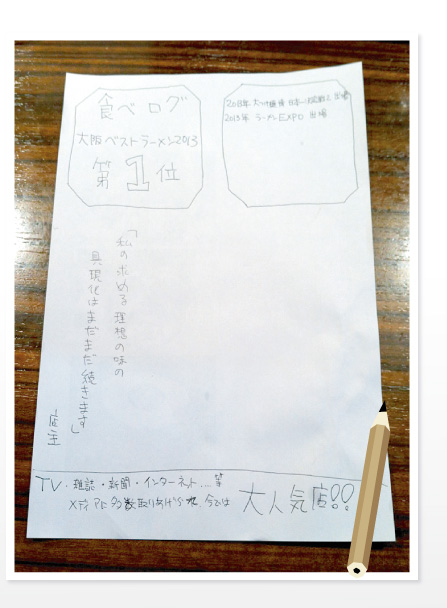 食べログ
大阪ベストラーメン2013
第1位
2013年 大つけ麺博 日本一決定戦 出場
2013年 ラーメンEXPO 出場
「私の求める理想の味の
具現化はまだまだ続きます」
店主
TV・雑誌・新聞・インターネット....等
メディアに多数取りあげられ、今では
大人気店!!